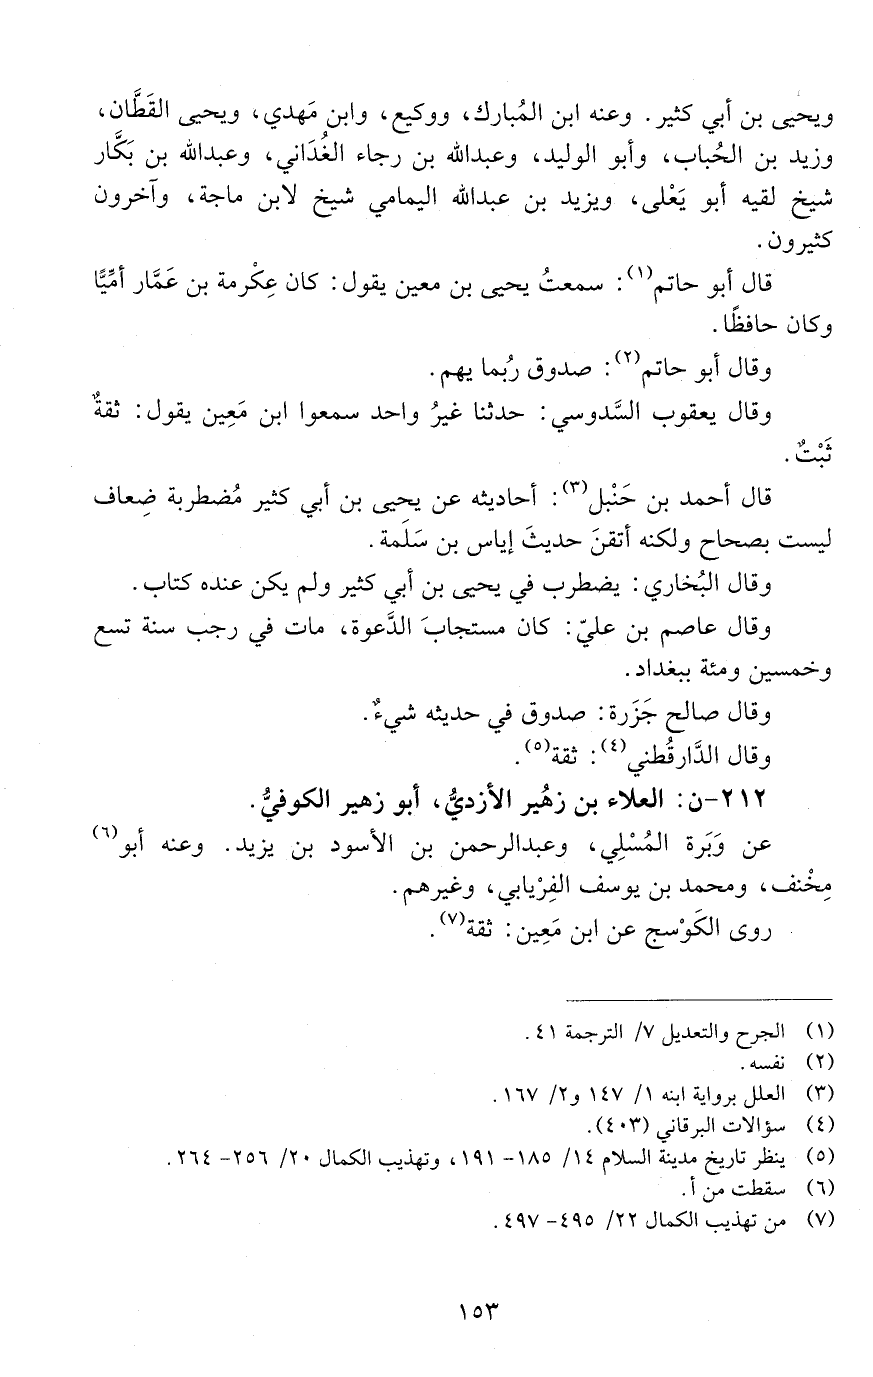 ويحيى بن أبي كثير. وعنه ابن المُبارك، ووكيع، وابن مَهدي، ويحيى القَطَّان،
وزيد بن الحُباب، وأبو الوليد، وعبدالله بن رجاء الغُدَاني، وعبدالله بن بَكَّار
شيخ لقيه أبو يَعْلى، ويزيد بن عبدالله اليمامي شيخ لابن ماجة، وآخرون
كثيرون.
قال أبو حاتم(١): سمعتُ يحيى بن معين يقول: كان عِكْرمة بن عَمَّار أمِّيًّا
وكان حافظًا.
وقال أبو حاتم(٢): صدوق رُبما يهم.
وقال يعقوب السَّدوسي: حدثنا غيرُ واحد سمعوا ابن مَعِين يقول: ثقةٌ
ثَبْتٌ.
قال أحمد بن حَنْبل(٣): أحاديثه عن يحيى بن أبي كثير مُضطربة ضِعاف
ليست بصحاح ولكنه أتقنَ حديثَ إياس بن سَلَمة.
وقال البُخاري: يضطرب في يحيى بن أبي كثير ولم يكن عنده كتاب.
وقال عاصم بن عليّ: كان مستجابَ الدَّعوة، مات في رجب سنة تسع
وخمسين ومئة ببغداد.
وقال صالح جَزَرة: صدوق في حديثه شيءٌ.
وقال الدَّارقُطني(٤): ثقة(٥).
٢١٢-ن: العلاء بن زهُير الأزديُّ، أبو زهير الكوفيُّ.
عن وَبَرة المُسْلِي، وعبدالرحمن بن الأسود بن يزيد. وعنه أبو(٦)
مِخْنف، ومحمد بن يوسف الفِرْيابي، وغيرهم.
روى الكَوْسج عن ابن مَعِين: ثقة(٧).
(١) الجرح والتعديل ٧/ الترجمة ٤١.
(٢) نفسه.
(٣) العلل برواية ابنه ١/ ١٤٧ و٢/ ١٦٧.
(٤) سؤالات البرقاني (٤٠٣).
(٥) ينظر تاريخ مدينة السلام ١٤/ ١٨٥- ١٩١، وتهذيب الكمال ٢٠/ ٢٥٦- ٢٦٤.
(٦) سقطت من أ.
(٧) من تهذيب الكمال ٢٢/ ٤٩٥- ٤٩٧.
١٥٣